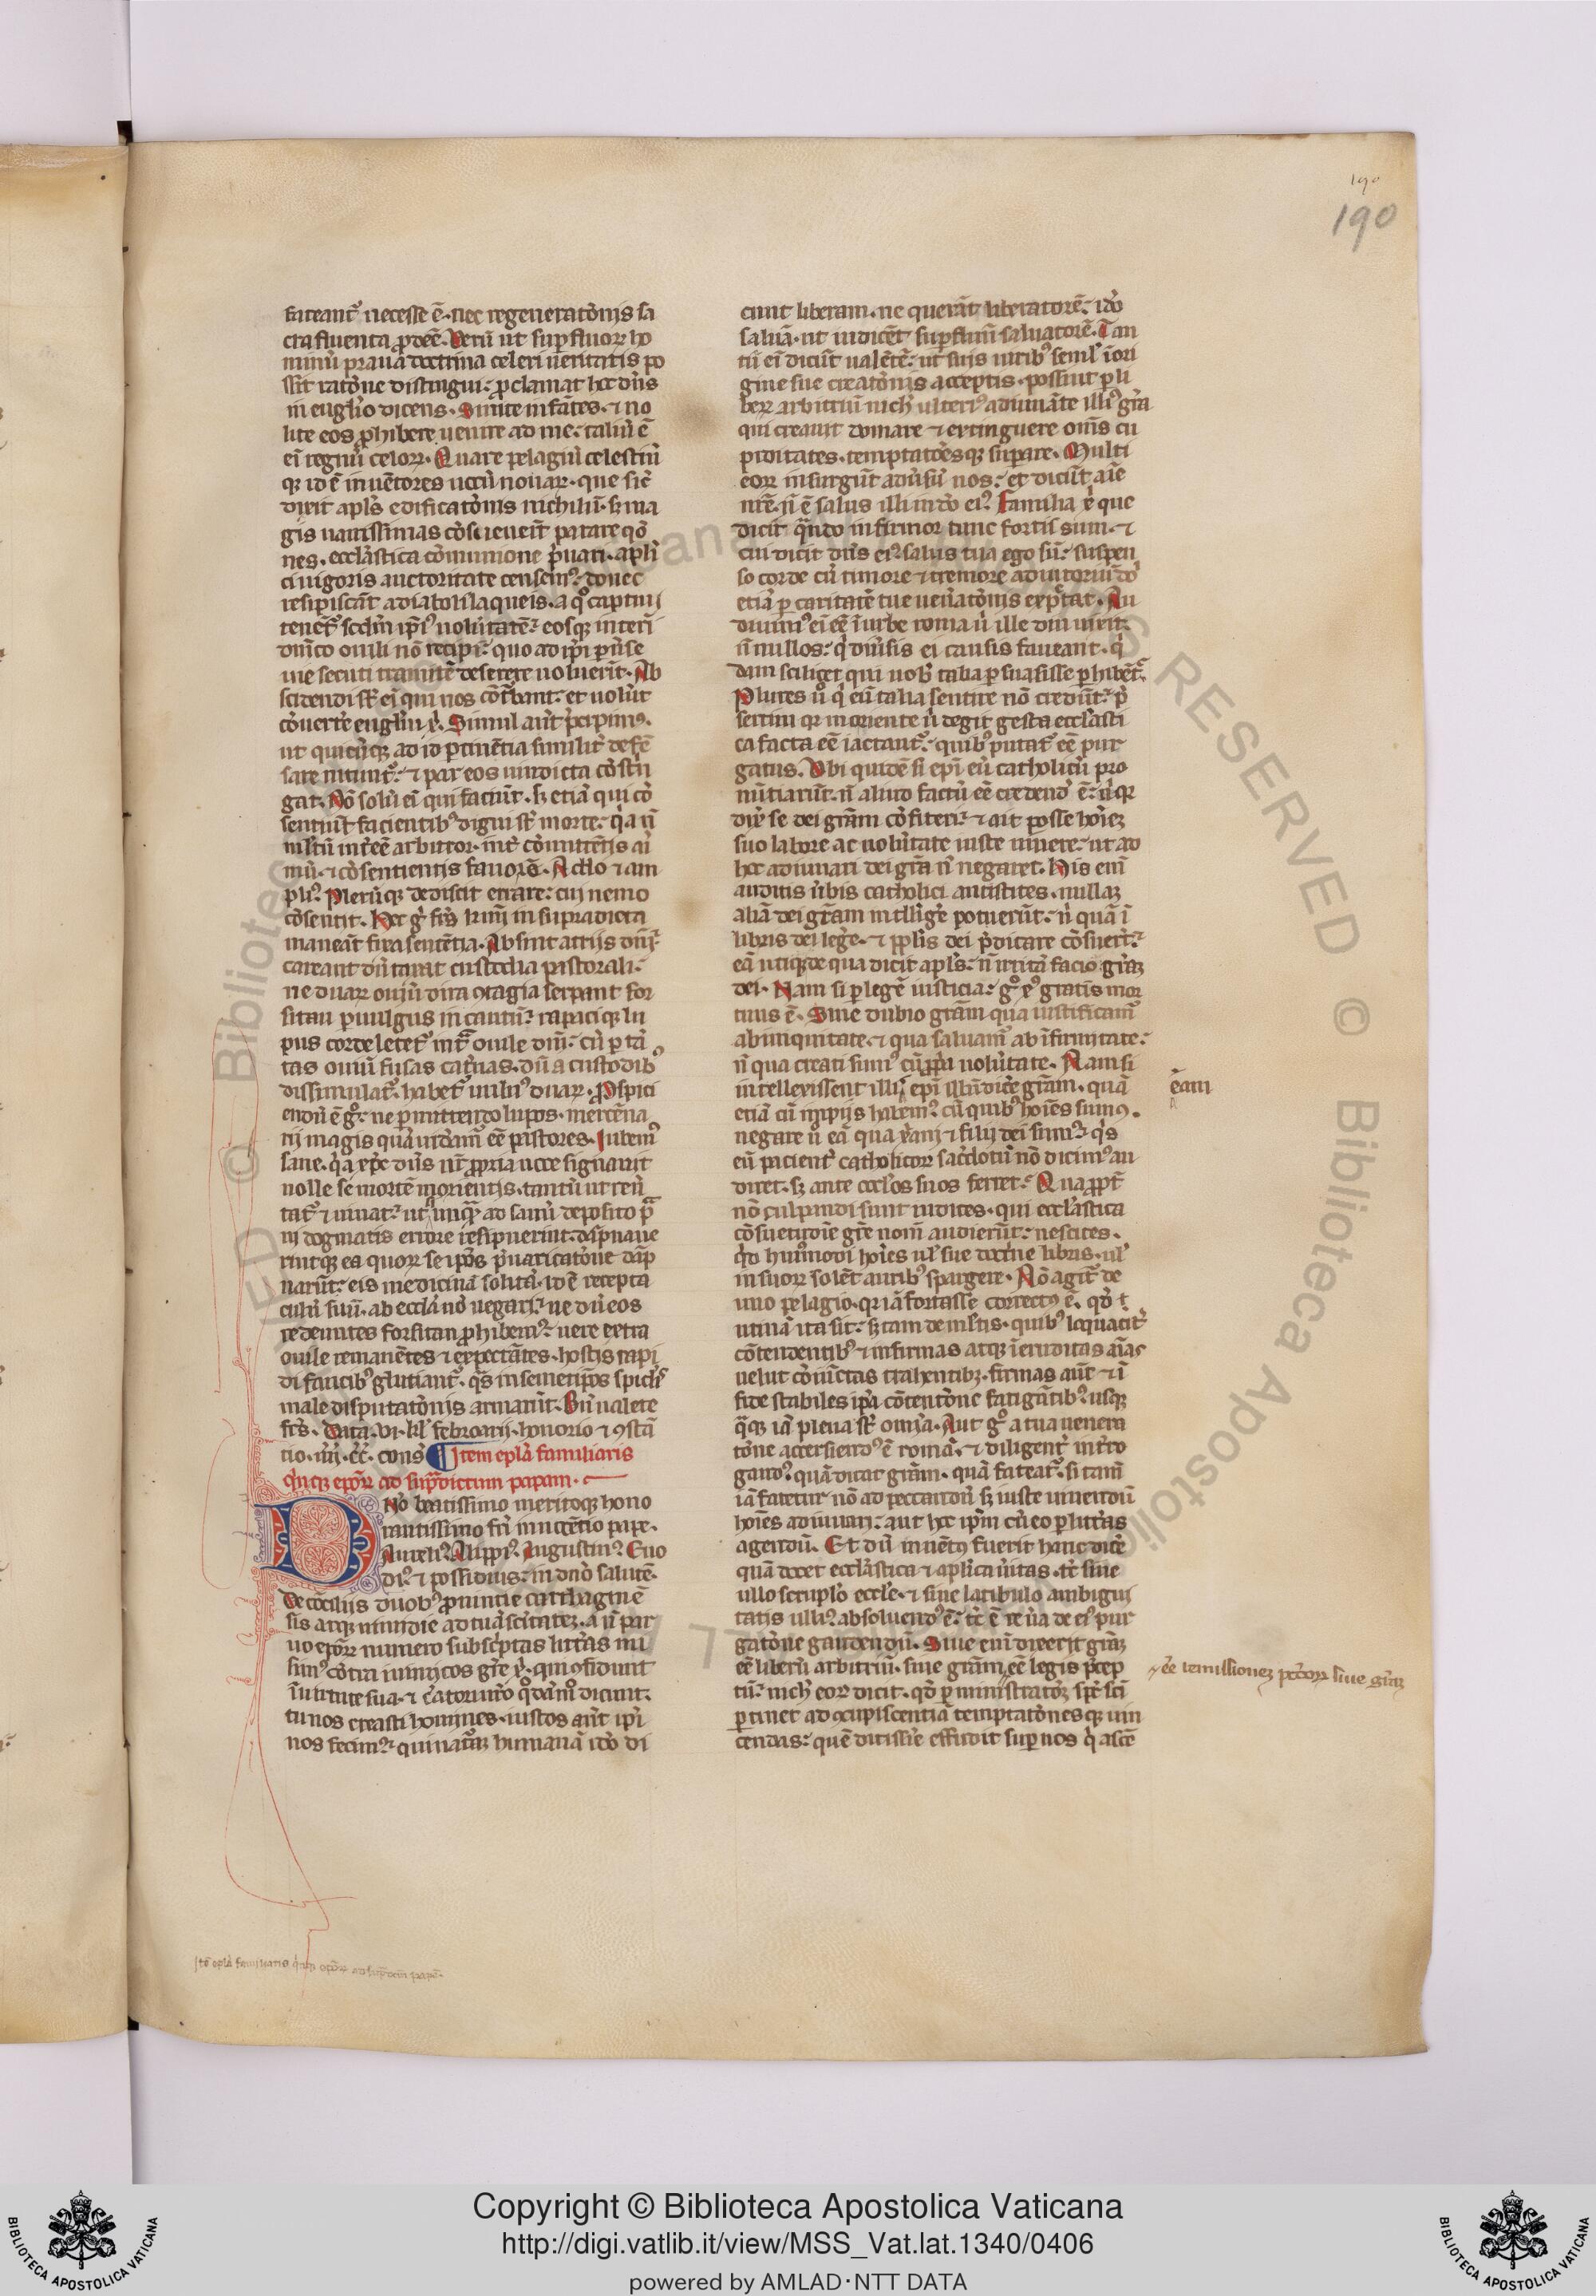 190
190
fateant᷑ necesse ē. nec regeneratōnis sa
cra fluenta ꝓdēē. Verū ut suꝑfluoꝝ ho
minū praua doctrina celeri ueritatis po
ssit ratōne distingui: ꝓclamat hoc dn̄s
in eugl̄io dicens. Sinite infātes. ⁊ no
lite eos ꝓhibere uenire ad me: taliū ē
ei᷑ regnū celoꝝ. Quare pelagiū celestiū
qꝫ id ē inuētores uocū nouaꝝ. que sic᷑
dixit apl̄s edificatōnis nichilū. sꝫ ma
gis uanissimas cōsueuer̄t parare qō
nes. eccl̄astica cōmunione p̄uari. apl̄i
ci uigoris auctoritate censemꝰ: donec
resipiscāt a diaboli laqueis. a qͦ captiui
tenēt᷑ scd̄m ip̄iꝰ uolūtatē: eosqꝫ interī
dn̄ico ouili nō recipi: quo ad ip̄i ꝑuerse
uie secuti tramitē deserere uoluer̄t. Ab
scidendi st̄ ei᷑ qui nos cōt᷑bant: et uolūt
cōuerte eugl̄iū x̄. Simul aūt p̄cipimꝰ.
ut quicūqꝫ ad id ꝑtinētia similit᷑ defē
sare nitunt᷑: ⁊ par eos uindicta cōstrī
gat. Nō solū ei᷑ qui faciūt. sꝫ etiā qui cō
sentiūt facientibꝰ digni st̄ morte: qa n̄
ml̄tū int᷑ēē arbitror. int᷑ cōmittētis ai
mū. ⁊ cōsentientis fauorē. Addo ⁊ am
pliꝰ. Plerūqꝫ dediscit errare: cui nemo
cōsentit. Hec gͦ frs̄ kmi in supradicta
maneāt fixa sentētia. Absint atrijs dn̄i:
careant dūtaxat custodia pastorali:
ne duaꝝ ouiū dira ꝯtagia serpant for
sitan ꝑ uulgus incautū: rapaciqꝫ lu
pus corde letet᷑ intra ouile dn̄i: cū ꝑ tā
tas ouiū fusas cat᷑uas. dū a custodibꝰ
dissimulat᷑. habet᷑ uulnꝰ duaꝝ. Pspici
endū ē gͦ: ne ꝑmittendo lupos. mercēna
rij magis quā uideam᷑ ēē pastores. Iubemꝰ
sane. qa xp̄c dn̄s nr̄ ꝓpria uoce signauit
nolle se mortē morientis. tantū ut reu᷑
tat᷑ ⁊ uiuat: ut si unqꝫ ad sanū deposito pͣ
ui dogmatis errore resipuerint. dāpnaue
rintqꝫ ea quoꝝ se ip̄os p̄uaricatōne dāp
narūt: eis medicinā solitā. id ē recepta
culū suū. ab eccl̄a nō negari: ne dū eos
redeuntes forsitan ꝓhibemꝰ. uere extra
ouile remanētes ⁊ expectātes. hostis rapi
di faucibꝰ glutiant᷑. qs̄ in semetip̄os spicl̄is
male disputatōnis armarūt. Bn̄ ualete
frs̄. Data. vi. kl̄ februarij. honorio ⁊ ꝯstā
tio. uu. cc. cons̄ ¶ Item epl̄a familiaris
qnqꝫ epōꝝ ad suprͣdictum papam.
DNo beatissimo meritoqꝫ hono
rantissimo fri innocētio pape.
Aureliꝰ. Alippiꝰ. Augustinꝰ. Euo
diꝰ. ⁊ possidius: in dn̄o salutē.
De cōcilijs duobꝰ ꝓuincie carthaginē
sis atqꝫ numidie ad tuā sc̄itatē. a n̄ par
uo epōꝝ numero subsc̄ptas litt᷑as mi
simꝰ cōtra inimicos gr̄e x̄. qui ꝯfidunt
ī uirtute sua. ⁊ c᷑atori nr̄o qͦdāmͦ dicunt.
tu nos creasti homines. iustos aūt ip̄i
nos fecimꝰ. qui natāꝫ humanā ido di
cunt liberam. ne querāt liberatorē: ido
saluā. ut iudicēt suꝑfluū saluatorē. Tan
tū ei᷑ dicūt ualētē: ut suis uiribꝰ seml᷑ ī ori
gine sue creatōnis acceptis. possint ꝑ li
beꝝ arbitriū nich᷑ ulteriꝰ adiuuāte illiꝰ gr̄a
qui creauit domare ⁊ extinguere om̄s cu
piditates. temptatōesqꝫ suꝑare. Multi
eoꝝ insurgūt adūsū nos: et dicūt aīe
nr̄e. n̄ ē salus illi in dō eiꝰ. Familia x̄ que
dicit qͣndo infirmor tunc fortis sum. ⁊
cui dicit dn̄s eiꝰ salus tua ego sū: suspen
so corde cū timore ⁊ tremore adiutoriū dī
etiā ꝑ caritatē tue uen᷑atōnis expͨtat. Au
diuimꝰ ei᷑ ēē ī urbe roma u᷑ ille diu uixit.
n̄ nullos: q᷑ diu᷑sis ei causis faueant. q᷑
dam scilicet qui uob᷑ talia ꝑsuasisse ꝑhibēt᷑.
Plures u᷑ q᷑ eū talia sentire nō crediūt: p̄
sertim qꝛ in oriente u᷑ degit gesta eccl̄asti
ca facta ēē iactant᷑: quibꝰ putat᷑ ēē pur
gatus. Vbi quidē si epī eū catholicū pro
nūtiarūt. n̄ aliud factū ēē credend᷑ ē: nꝫ qꝛ
dix᷑ se dei gr̄am cōfiteri: ⁊ ait posse hoīeꝫ
suo labore ac uolūtate iuste uiuere: ut ad
hoc adiuuari dei gr̄a n̄ negaret. His enī
auditis u᷑bis catholici antistites. nullaꝫ
aliā dei gr̄am intll̄ige potuerūt: n̄ quā ī
libris dei leg᷑e. ⁊ ppl̄is dei p̄dicare cōsuer̄t:
eā utiqꝫ de qua dicit apl̄s: n̄ irritā facio gr̄aꝫ
dei. Nam si ꝑ legē iusticia: gͦ xꝰ gratis mor
tuus ē. Sine dubio gr̄am qua iustificam᷑
ab iniquitate. ⁊ qua saluam᷑ ab īfirmitate:
n̄ qua creati sumꝰ cū ꝓpria uolūtate. Nam si
intellexissent illi epī illū dic᷑e gr̄am. quā
etiā cū impijs habemꝰ. cū quibꝰ hoīes sumꝰ.
negare u᷑ eā qua xp̄iani ⁊ filij dei sumꝰ: qs̄
eū pacient᷑ catholicoꝝ sac᷑dotū nō dicimꝰ au
diret. sꝫ ante ocl̄os suos ferret: Quaꝓpt᷑
nō culpandi sunt iudices. qui eccl̄astica
cōsuetudīe gr̄e nom̄ audierūt: nescites.
qd̄ huiꝰmodi hoīes ul᷑ sue doct᷑ne libris. ul᷑
in suoꝝ solēt auribꝰ spargere. Nō agit᷑ de
uno pelagio. qꝛ iā fortasse correctꝰ ē. qd̄
utinā ita sit: sꝫ tam de ml̄tis. quibꝰ loquacit᷑
cōtendentibꝰ ⁊ infirmas atqꝫ īeruditas aīas
uelut cōuictas trahentibꝫ. firmas aūt ⁊ ī
fide stabiles ip̄a cōtentōne fatigātibꝰ: usqꝫ
q̄qꝫ iā plena st̄ om̄ia. Aut gͦ a tua uenera
tōne accersiendꝰ ē romā. ⁊ diligent᷑ int᷑ro
gandꝰ. quā dicat gr̄am. quā fateat᷑. si tam̄
iā fatetur nō ad peccandū sꝫ iuste uiuendū
hoīes adiuuari: aut hoc ip̄m cū eo ꝑ litt᷑as
agendū. Et dū inuētꝰ fuerit hanc dic᷑e
quā docet eccl̄astica ⁊ apl̄ica u᷑itas. tc̄ sine
ullo scrupl̄o eccl̄e. ⁊ sine latibulo ambigui
tatis ulliꝰ. absoluendꝰ ē: tc̄ ē re u᷑a de eiꝰ pur
gatōne gaudendū. Siue enī dixerit gr̄aꝫ
ēē liberū arbitriū. siue gr̄am ēē legis p̄cep
tū: nich᷑ eoꝝ dicit. qd̄ ꝑ ministratōꝫ spc̄ sci
ꝑtinet ad ꝯcupiscentiā temptatōnesqꝫ uin
cendas: quē ditissīe effudit suꝑ nos q᷑ ascē
ēam
ēē remissioneꝫ pctōꝝ siue gr̄aꝫ
Itē epl̄a familiaris qnqꝫ epōꝝ ad supradictū papā.
Copyright © Biblioteca Apostolica Vaticana
http://digi.vatlib.it/view/MSS_Vat.lat.1340/0406
powered by AMLAD·NTT DATA
BIBLIOTECA APOSTOLICA VATICANA
BIBLIOTECA APOSTOLICA VATICANA